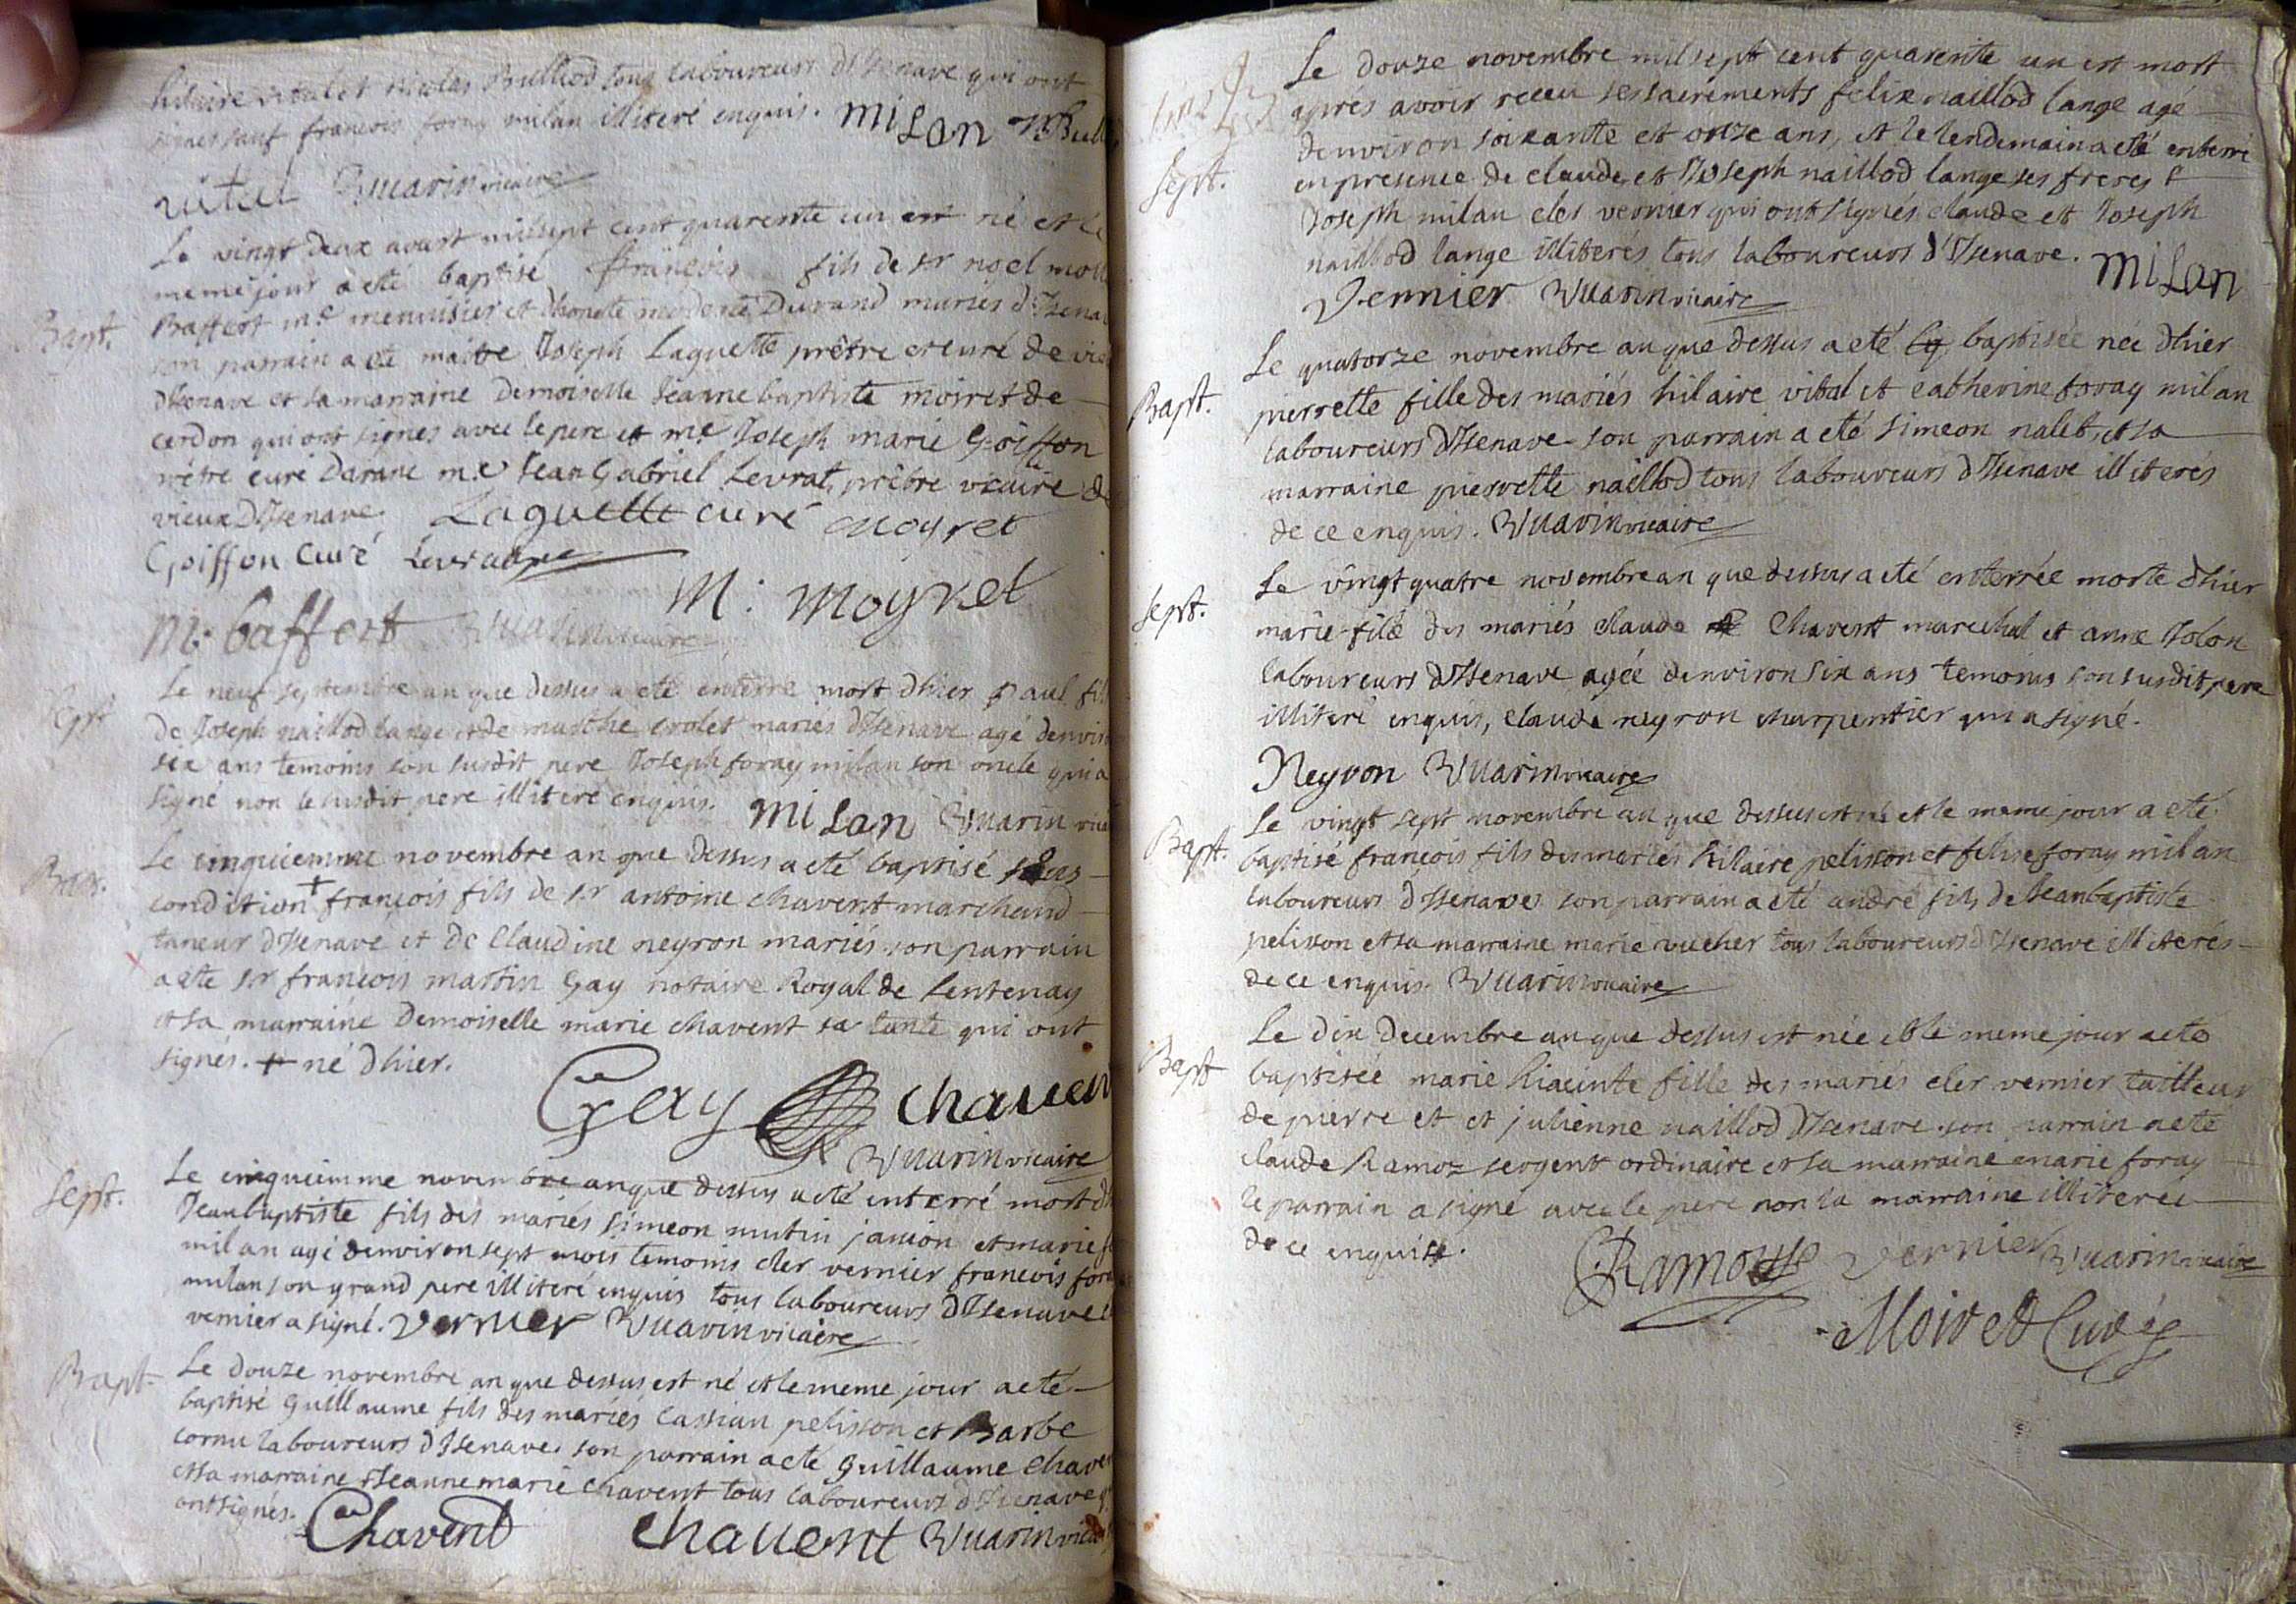 hilaire vitalet nicolas Bulliod tous laboureurs d'Isenave qui ont
signes sauf francois foray milan illiteré enquis. miLan
vital Vuarin vicaire
Le vingt deux aoust mil sept cent quarente un est né et le
meme jour a eté baptisé françois fils de sr noel
Bapt. Baffert me menuisier et d'honete modeste Durand mariés d'Isenave
son parrain a eté maitre Joseph Laguette prêtre et curé de vieu
d'Isenave et sa marraine Demoiselle Jeanne baptiste moiret de
cerdon qui ont signes avec le pere et me Joseph marie Goiffon
prêtre curé Darane me Jean Gabriel Levrat prêtre vicaire de
vieux d'Isenave. Laguette curé Moyret
Goiffon Curé Levrat
M. Moyret
M. baffert Vuarin vicaire
Sept. Le neuf septembre an que dessus a eté enterré mort d'hier Paul fils
de Joseph naillod lange et de marthe evolet mariés d'Isenave agé denviron
six ans temoins son susdit pere Joseph foray milan son oncle qui a
signé non le susdit pere illiteré enquis. miLan Vuarin
Bapt. Le cinquiemme novembre an que dessus a eté baptisé sous
condition + françois fils de sr antoine chavent marchand
taneur d'Isenave et de Claudine neyron mariés son parrain
a eté sr françois martin Gay notaire Royal de Lentenay
et sa marraine Demoiselle marie chavent sa tante qui ont
signés. + né d'hier.
Gay chavent
Vuarin vicaire
Sept. Le cinquiemme novembre an que dessus a eté enterré mort
Jean baptiste fils des mariés simeon mutin janion et marie
milan agé denviron sept mois temoins cler vernier francois foray
milan son grand pere illiteré enquis tous laboureurs d'Isenave
vernier a signé. vernier Vuarin vicaire
Bapt. Le douze novembre an que dessus est né et le meme jour a eté
baptisé guillaume fils des mariés Cassian pelisson et Barbe
cornu laboureurs d'Isenave son parrain a eté guillaume chavent
et sa marraine Jeanne marie chavent tous laboureurs d'Isenave
ont signés.
Chavent chavent Vuarin vicaire
Le douze novembre mil sept cent quarente un est mort
aprés avoir receu ses sacrements felix naillod lange agé
denviron soixante et onze ans, et le lendemain a eté enterré
Sept. en presence de claude et Joseph naillod lange ses freres
Joseph milan cler vernier qui ont signés claude et Joseph
naillod lange illiterés tous laboureurs d'Isenave. miLan
Vernier Vuarin vicaire
Le quatorze novembre an que dessus a eté baptisée née d'hier
Bapt. pierrette fille des mariés hilaire vital et catherine foray milan
laboureurs d'Isenave son parrain a eté simeon nalet, et sa
marraine pierrette naillod tous laboureurs d'Isenave illiterés
de ce enquis. Vuarin vicaire
Le vingt quatre novembre an que dessus a eté enterrée morte d'hier
Sept. marie fille des mariés claude Chavent marechal et anne Jolon
laboureurs d'Isenave agée denviron six ans temoins son susdit pere
illiteré enquis, claude neyron charpentier qui a signé.
Neyron Vuarin vicaire
Le vingt sept novembre an que dessus est né et le meme jour a eté
Bapt. baptisé françois fils des mariés hilaire pelisson et felise foray milan
laboureurs d'Isenave son parrain a eté andré fils de Jean baptiste
pelisson et sa marraine marie vucher tous laboureurs d'Isenave illiterés
de ce enquis. Vuarin vicaire
Le dix decembre an que dessus est née et le meme jour a eté
Bapt baptisée marie hiacinte fille des mariés cler vernier tailleur
de pierre et et julienne naillod d'Isenave son parrain a eté
claude Ramoz sergent ordinaire et sa marraine marie foray
le parrain a signé avec le pere non la marraine illiterée
de ce enquise.
CRamouse vernier Vuarin vicaire
Moiret Curé